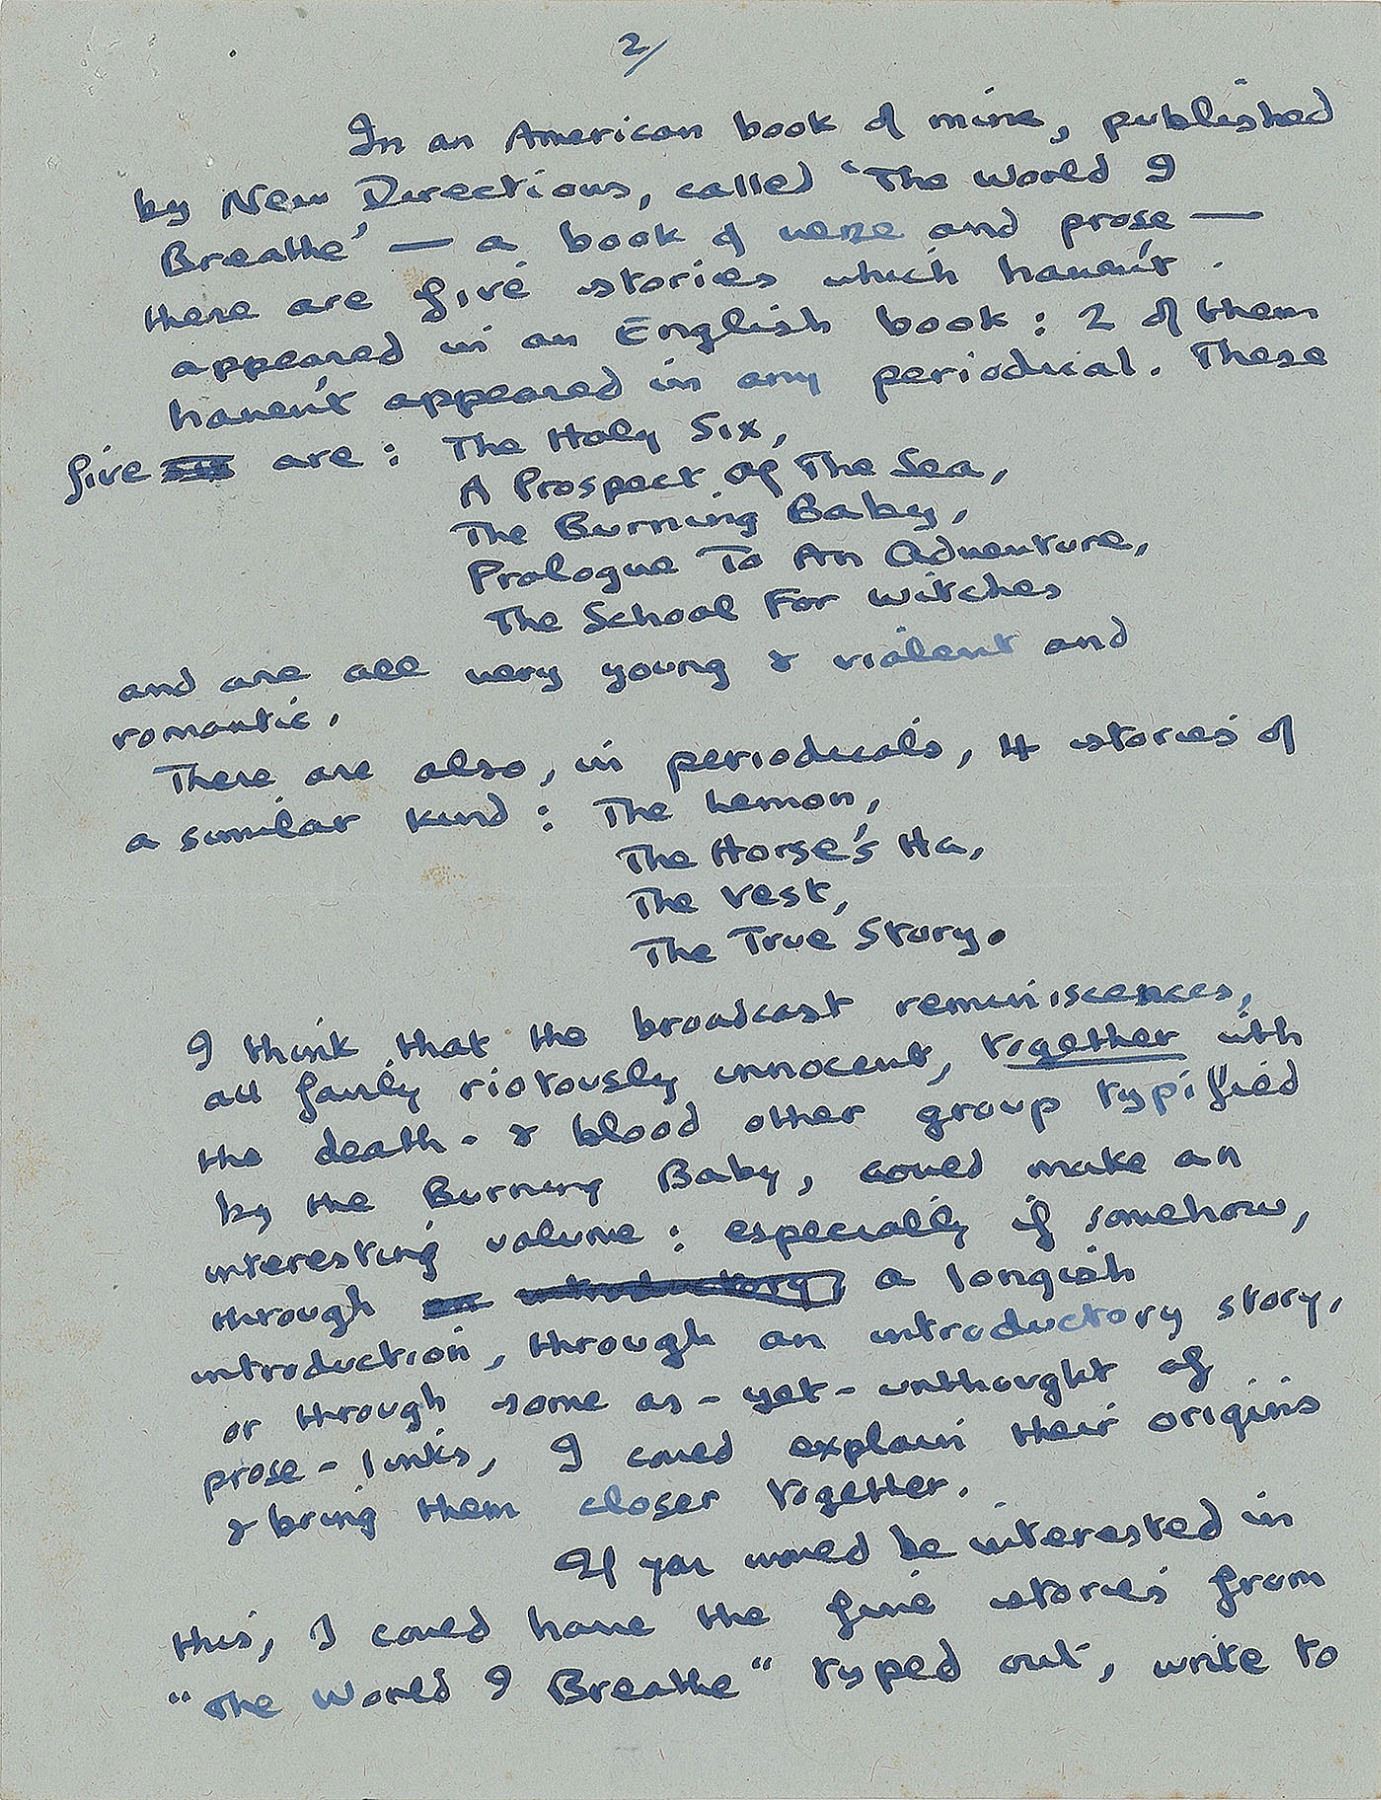 2/
In an American book of mine, published
by New Directions, called 'The World I
Breathe' — a book of verse and prose —
there are five stories which haven't
appeared in an English book : 2 of them
haven't appeared in any periodical. These
five are : The Holy Six,
A Prospect of The Sea,
The Burning Baby,
Prologue To An Adventure,
The School For Witches
and are all very young & violent and
romantic.
There are also, in periodicals, 4 stories of
a similar kind : The Lemon,
The Horse's Ha,
The Vest,
The True Story.
I think that the broadcast reminiscences,
all fairly riotously innocent, together with
the death- & blood other group typified
by the Burning Baby, could make an
interesting volume : especially if somehow,
through an introductory a longish
introduction, through an introductory story,
or through some as-yet-unthought of
prose-links, I could explain their origins
& bring them closer together.
If you would be interested in
this, I could have the five stories from
"The World I Breathe" typed out, write to